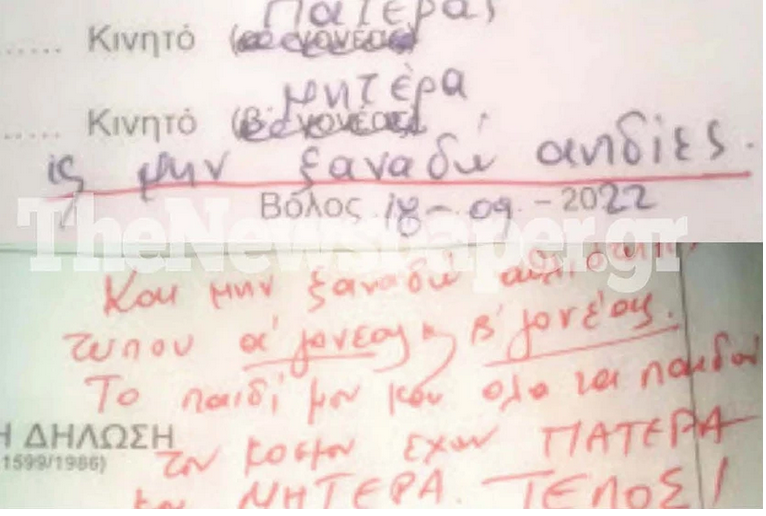 Πατέρας
..... Κινητό (α' γονέας)
μητέρα
..... Κινητό (β' γονέας)
μην ξαναδώ αηδίες.
Βόλος, 18-09-2022
TheNewspaper.gr
Και μην ξαναδώ
τυπου α' γονέας η β' γονέας.
Το παιδί μου και ολα τα παιδια
του κοσμου εχουν ΠΑΤΕΡΑ
Η ΔΗΛΩΣΗ
1599/1986)
και ΜΗΤΕΡΑ. ΤΕΛΟΣ!